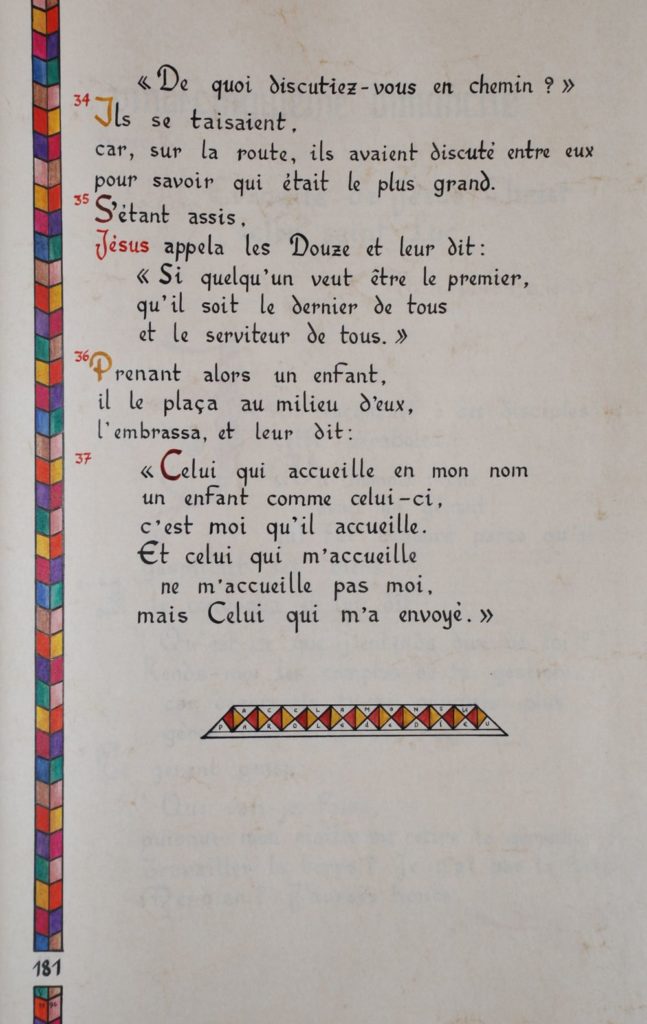 « De quoi discutiez-vous en chemin ? »
34 Ils se taisaient,
car, sur la route, ils avaient discuté entre eux
pour savoir qui était le plus grand.
35 S'étant assis,
Jésus appela les Douze et leur dit :
« Si quelqu'un veut être le premier,
qu'il soit le dernier de tous
et le serviteur de tous. »
36 Prenant alors un enfant,
il le plaça au milieu d'eux,
l'embrassa, et leur dit :
37 « Celui qui accueille en mon nom
un enfant comme celui-ci,
c'est moi qu'il accueille.
Et celui qui m'accueille
ne m'accueille pas moi,
mais Celui qui m'a envoyé. »
ACCLAMONS LA
PAROLE de DIEU
181